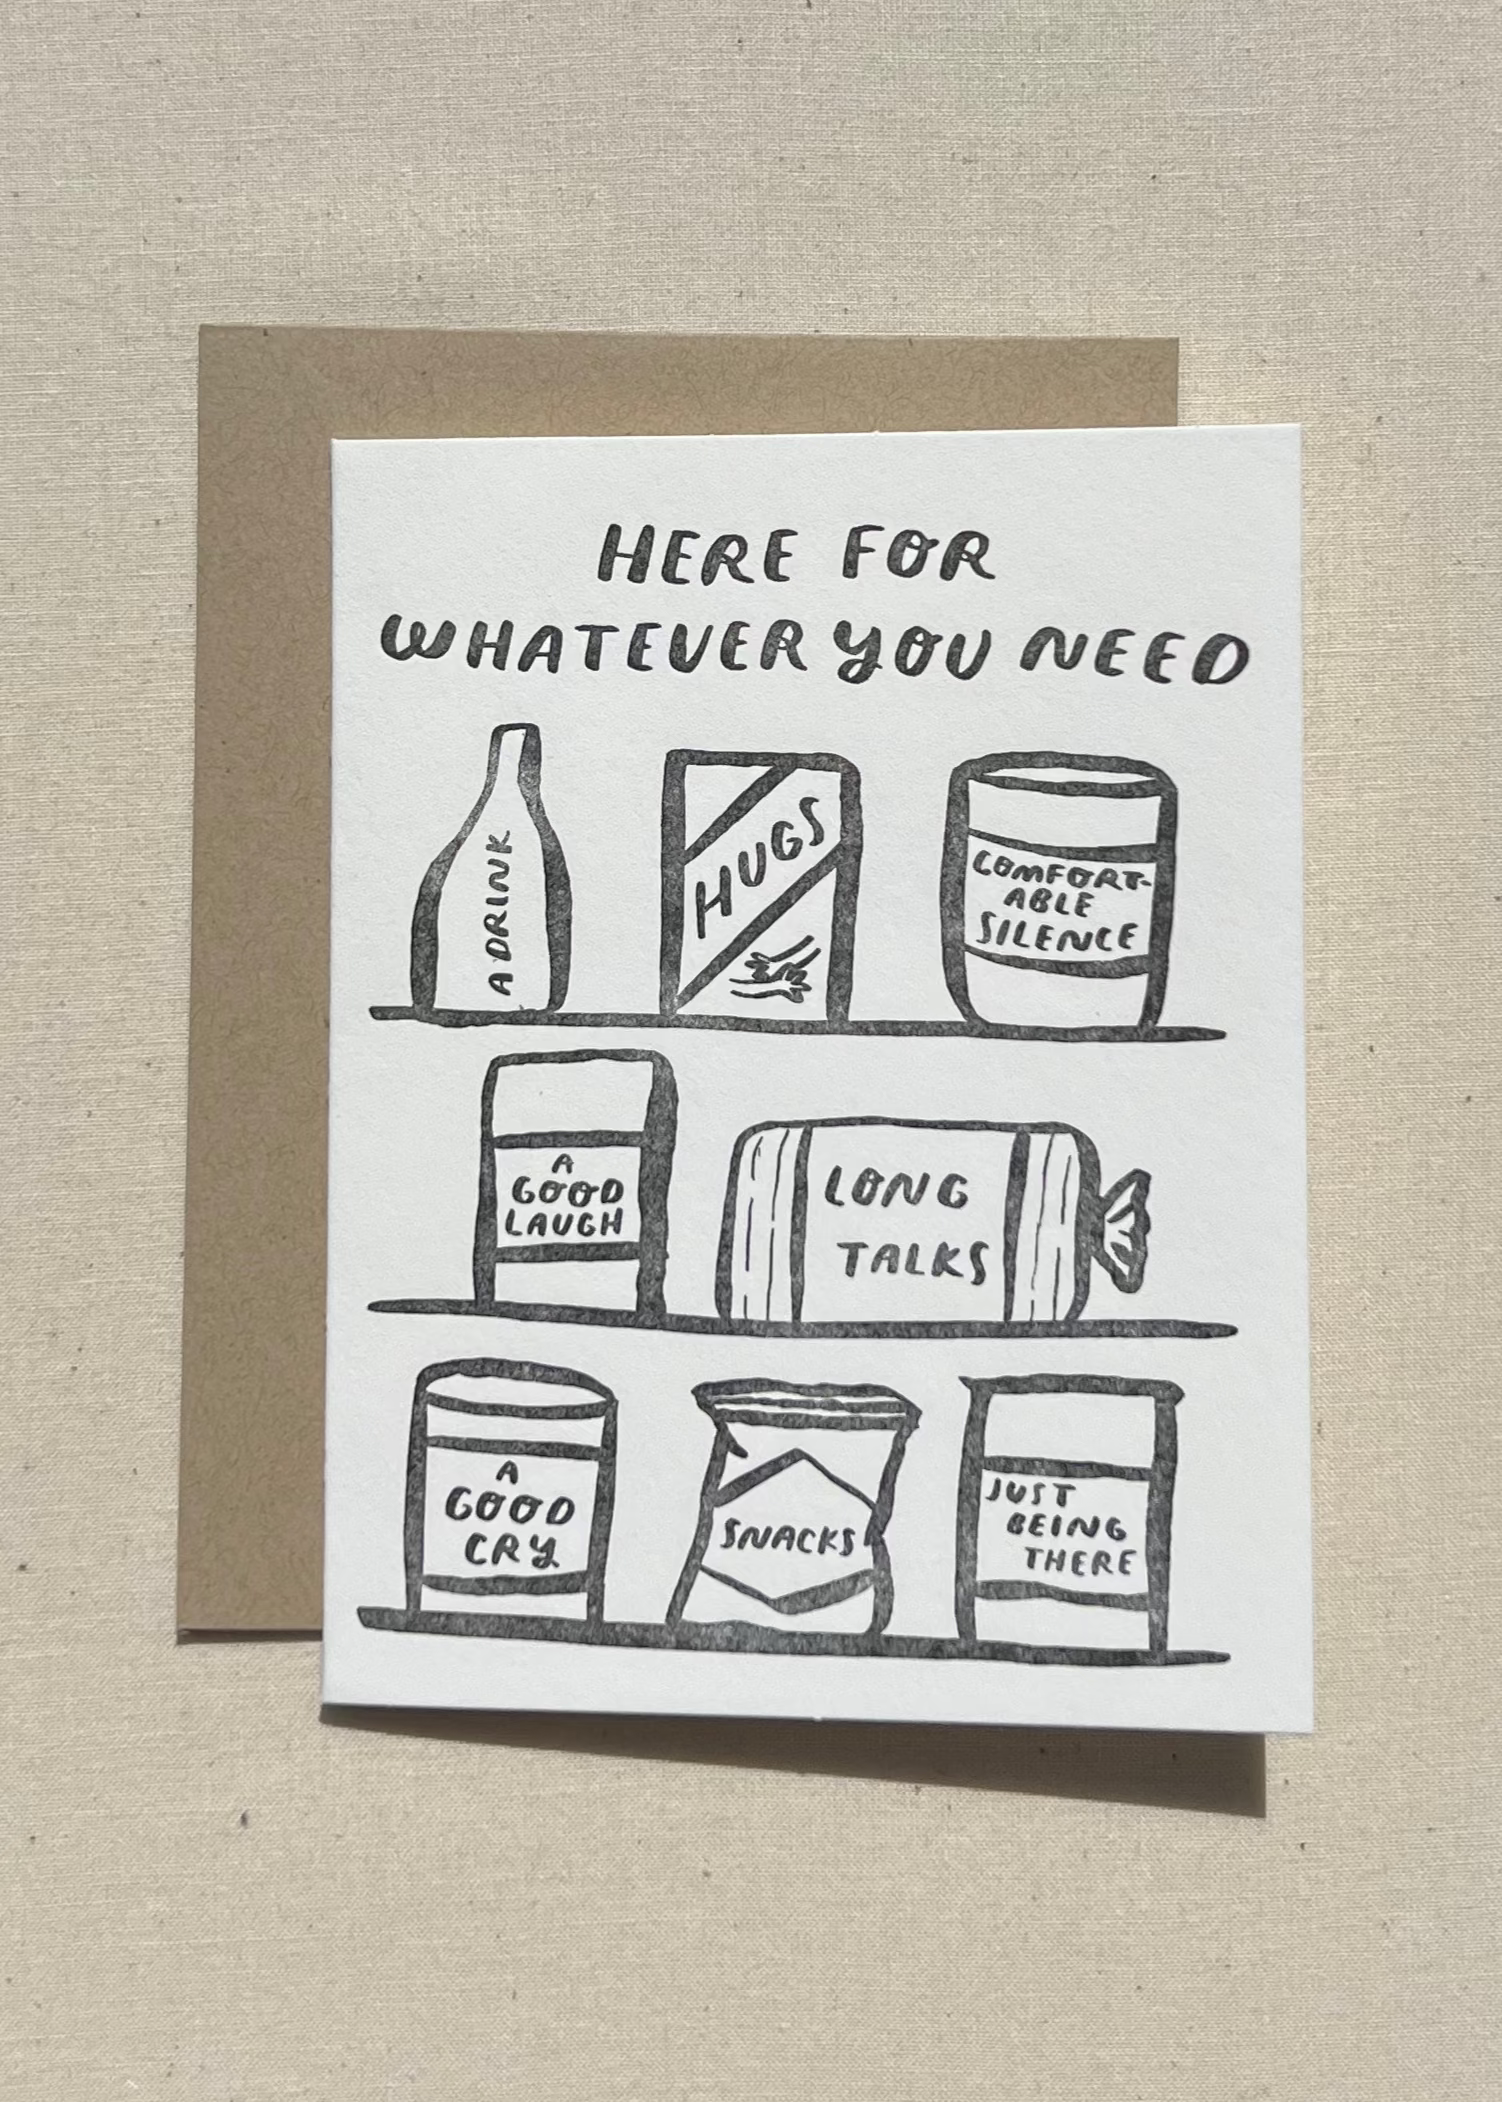 HERE FOR
WHATEVER YOU NEED
A DRINK
HUGS
COMFORT-
ABLE
SILENCE
A
GOOD
LAUGH
LONG
TALKS
A
GOOD
CRY
SNACKS
JUST
BEING
THERE